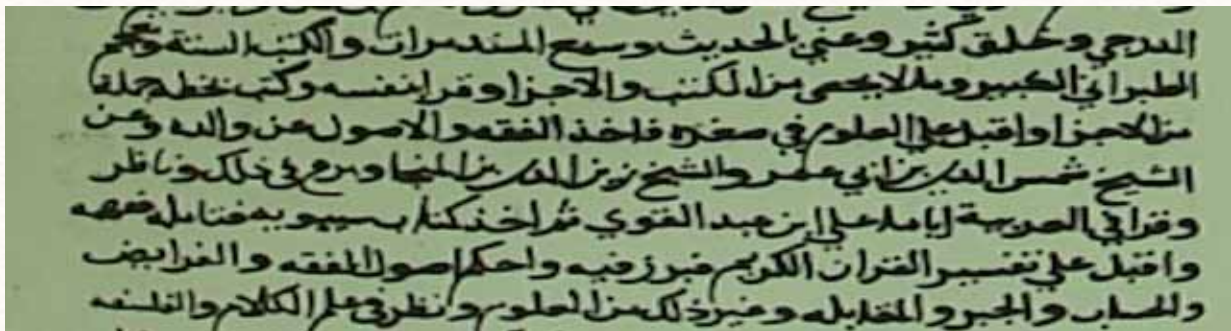 الدرجي وخلق كثير وعني بالحديث وسمع المسند مرات والكتب الستة ومعجم
الطبراني الكبير وما لا يحصى من الكتب والاجزا وقرا بنفسه وكتب بخطه جملة
من الاجزا واقبل على العلوم في صغره فاخذ الفقه والاصول عن والده وعن
الشيخ شمس الدين بن ابي عمر والشيخ زين الدين بن المنجا وبرع في ذلك وناظر
وقرا في العربية اياما على ابن عبد القوي ثم اخذ كتاب سيبويه فتامله ففهمه
واقبل على تفسير القران الكريم فبرز فيه واحكم اصول الفقه والفرايض
والحساب والجبر والمقابله وغير ذلك من العلوم ونظر في علم الكلام والفلسفه